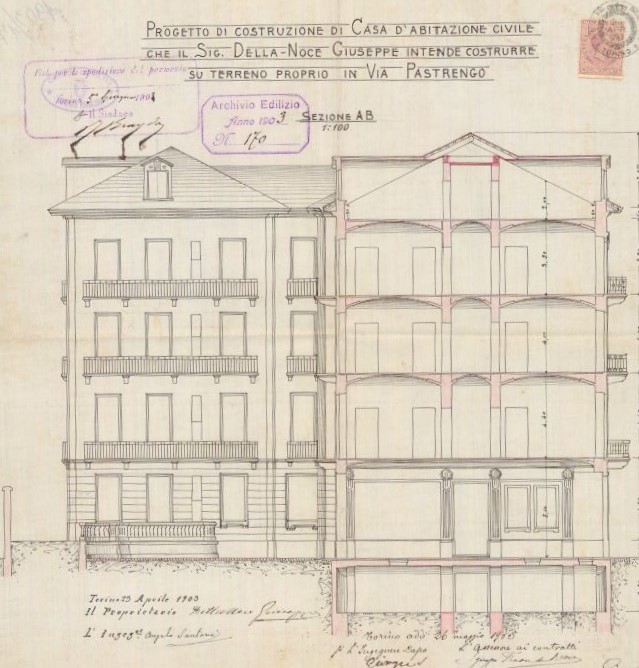 PROGETTO DI COSTRUZIONE DI CASA D'ABITAZIONE CIVILE
CHE IL SIG. DELLA-NOCE GIUSEPPE INTENDE COSTRURRE
SU TERRENO PROPRIO IN VIA PASTRENGO
Torino, 5 Giugno 1903
Il Sindaco
Archivio Edilizio
Anno 1903
N. 170
SEZIONE AB
1:100
Torino 23 Aprile 1903
Il Proprietario Dellanoce Giuseppe
L'Ingegn.re Angelo Santonè
Torino addì 26 maggio 1903
p. L'Ingegnere Capo
L'Assessore ai contratti